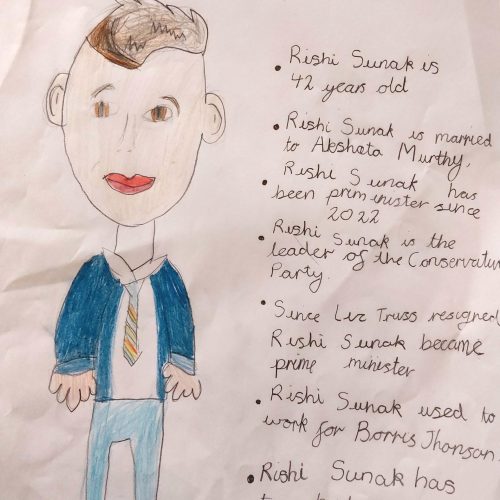 Rishi Sunak is
42 years old
Rishi Sunak is married
to Akshata Murthy,
Rishi Sunak has
been prim minister since
2022
Rishi Sunak is the
leader of the Conservative
Party.
Since Liz Truss resigned
Rishi Sunak became
prime minister
Rishi Sunak used to
work for Borris Jhonson.
Rishi Sunak has